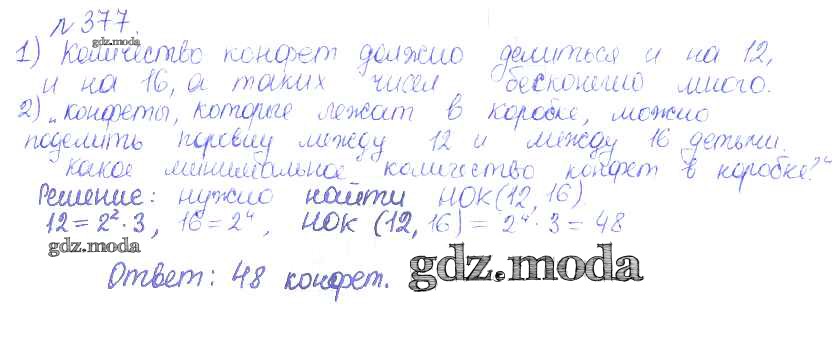 № 377.
gdz.moda
1) Количество конфет должно делиться и на 12,
и на 16, а таких чисел бесконечно много.
2) „Конфеты, которые лежат в коробке, можно
поделить поровну между 12 и между 16 детьми.
Какое минимальное количество конфет в коробке?“
Решение: нужно найти НОК (12, 16)
12 = 2² · 3, 16 = 2⁴, НОК (12, 16) = 2⁴ · 3 = 48
gdz.moda
Ответ: 48 конфет.
gdz.moda